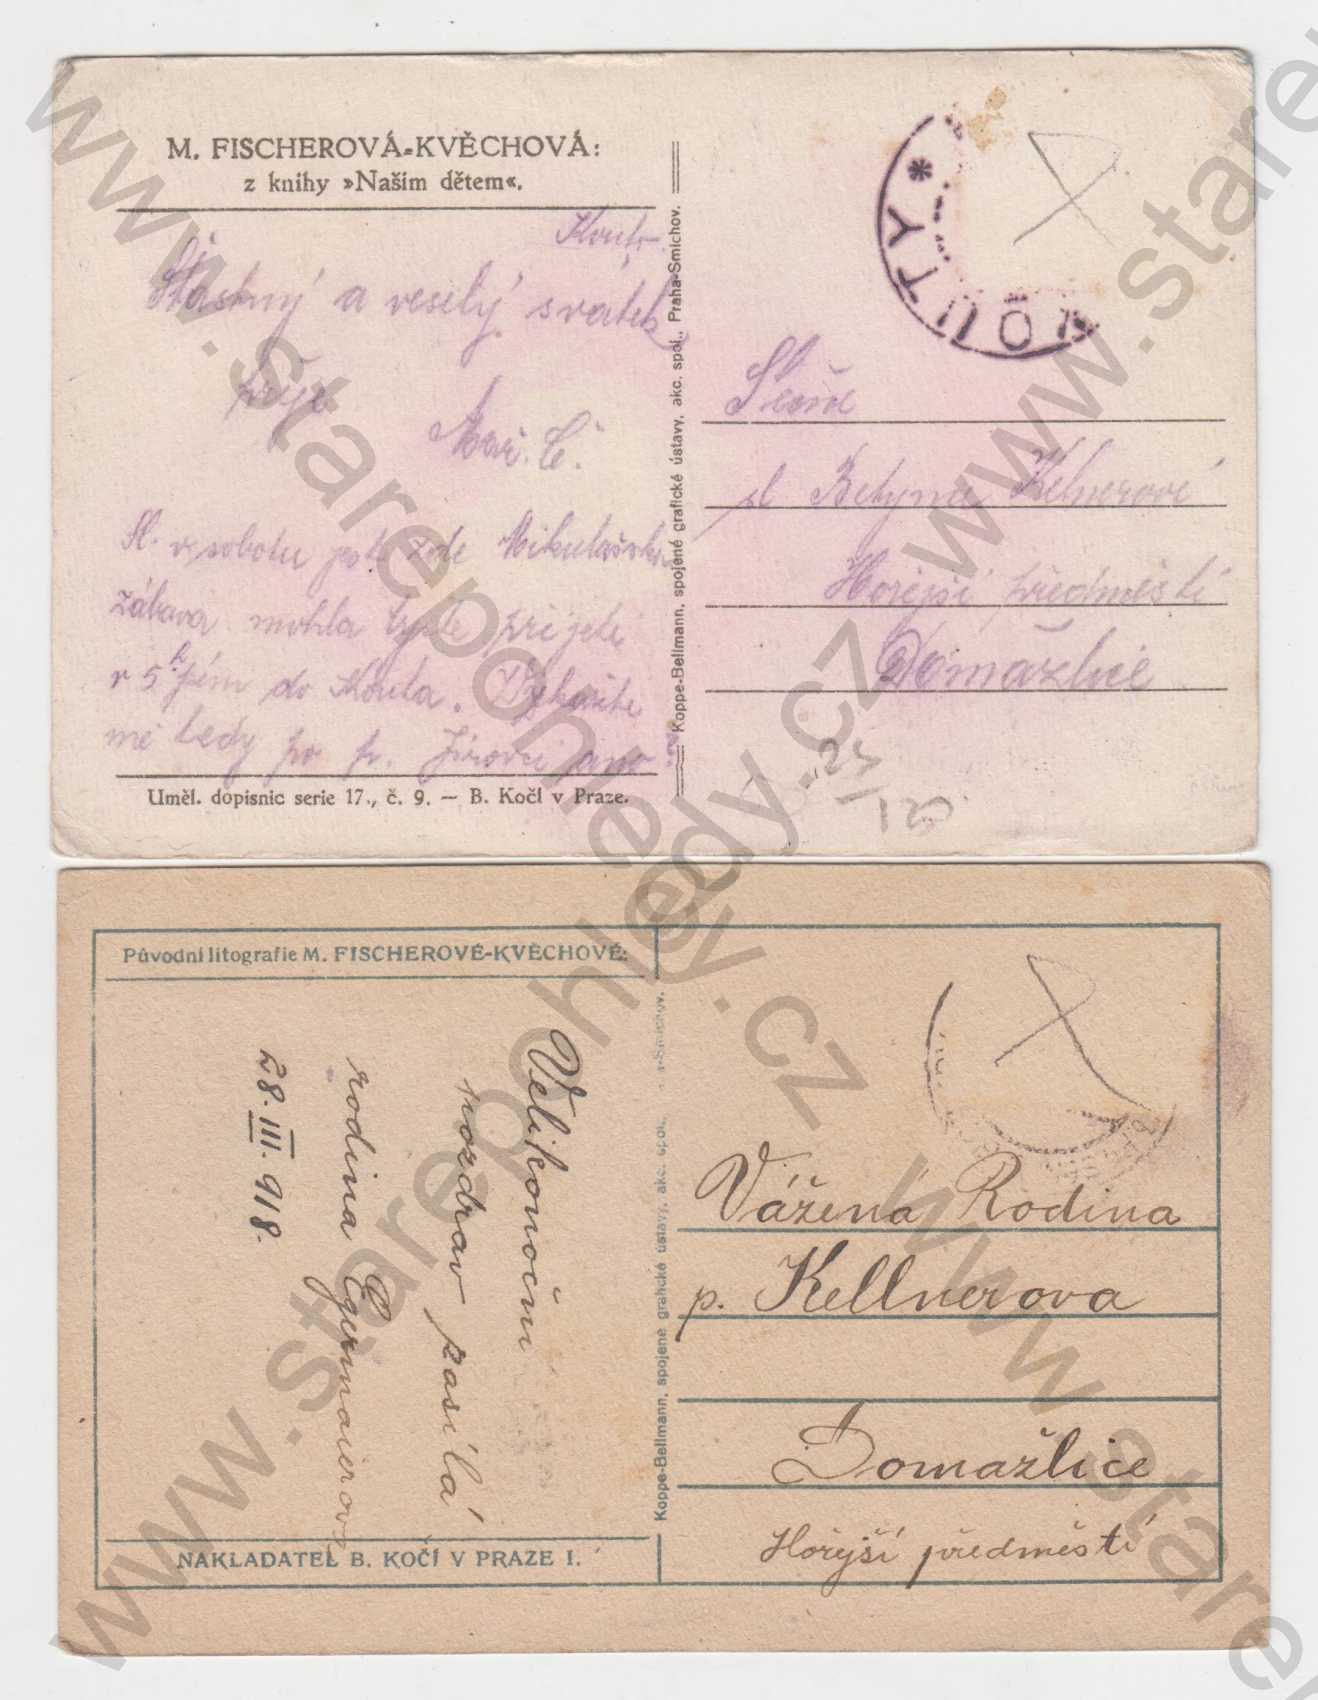 M. FISCHEROVÁ-KVĚCHOVÁ:
z knihy »Našim dětem«.
Kout
Šťastný a veselý svátek
přeje
Mař. Č.
Sl. v sobotu jest zde Mikulášská
zábava mohla byste přijeti
v 5 h. do Kouta.
mě tedy po p. ano?
Uměl. dopisnic serie 17., č. 9. — B. Kočí v Praze.
Koppe-Bellmann, spojené grafické ústavy, akc. spol., Praha-Smichov.
KOUTY *
Slečně
sl Betyna Kelnerové
Hořejší předměstí
Domažlice
25/120
Původní litografie M. FISCHEROVÉ-KVĚCHOVÉ:
Velikonoční
pozdrav zasílá
rodina Egermaierova
28. III. 918.
NAKLADATEL B. KOČÍ V PRAZE I.
Koppe-Bellmann, spojené grafické ústavy, akc. spol., Praha-Smichov.
Vážená Rodina
p. Kellnerova
Domažlice
Hořejší předměstí
www.starepohledy.cz
www.starepohledy.cz
www.starepohledy.cz
www.stare